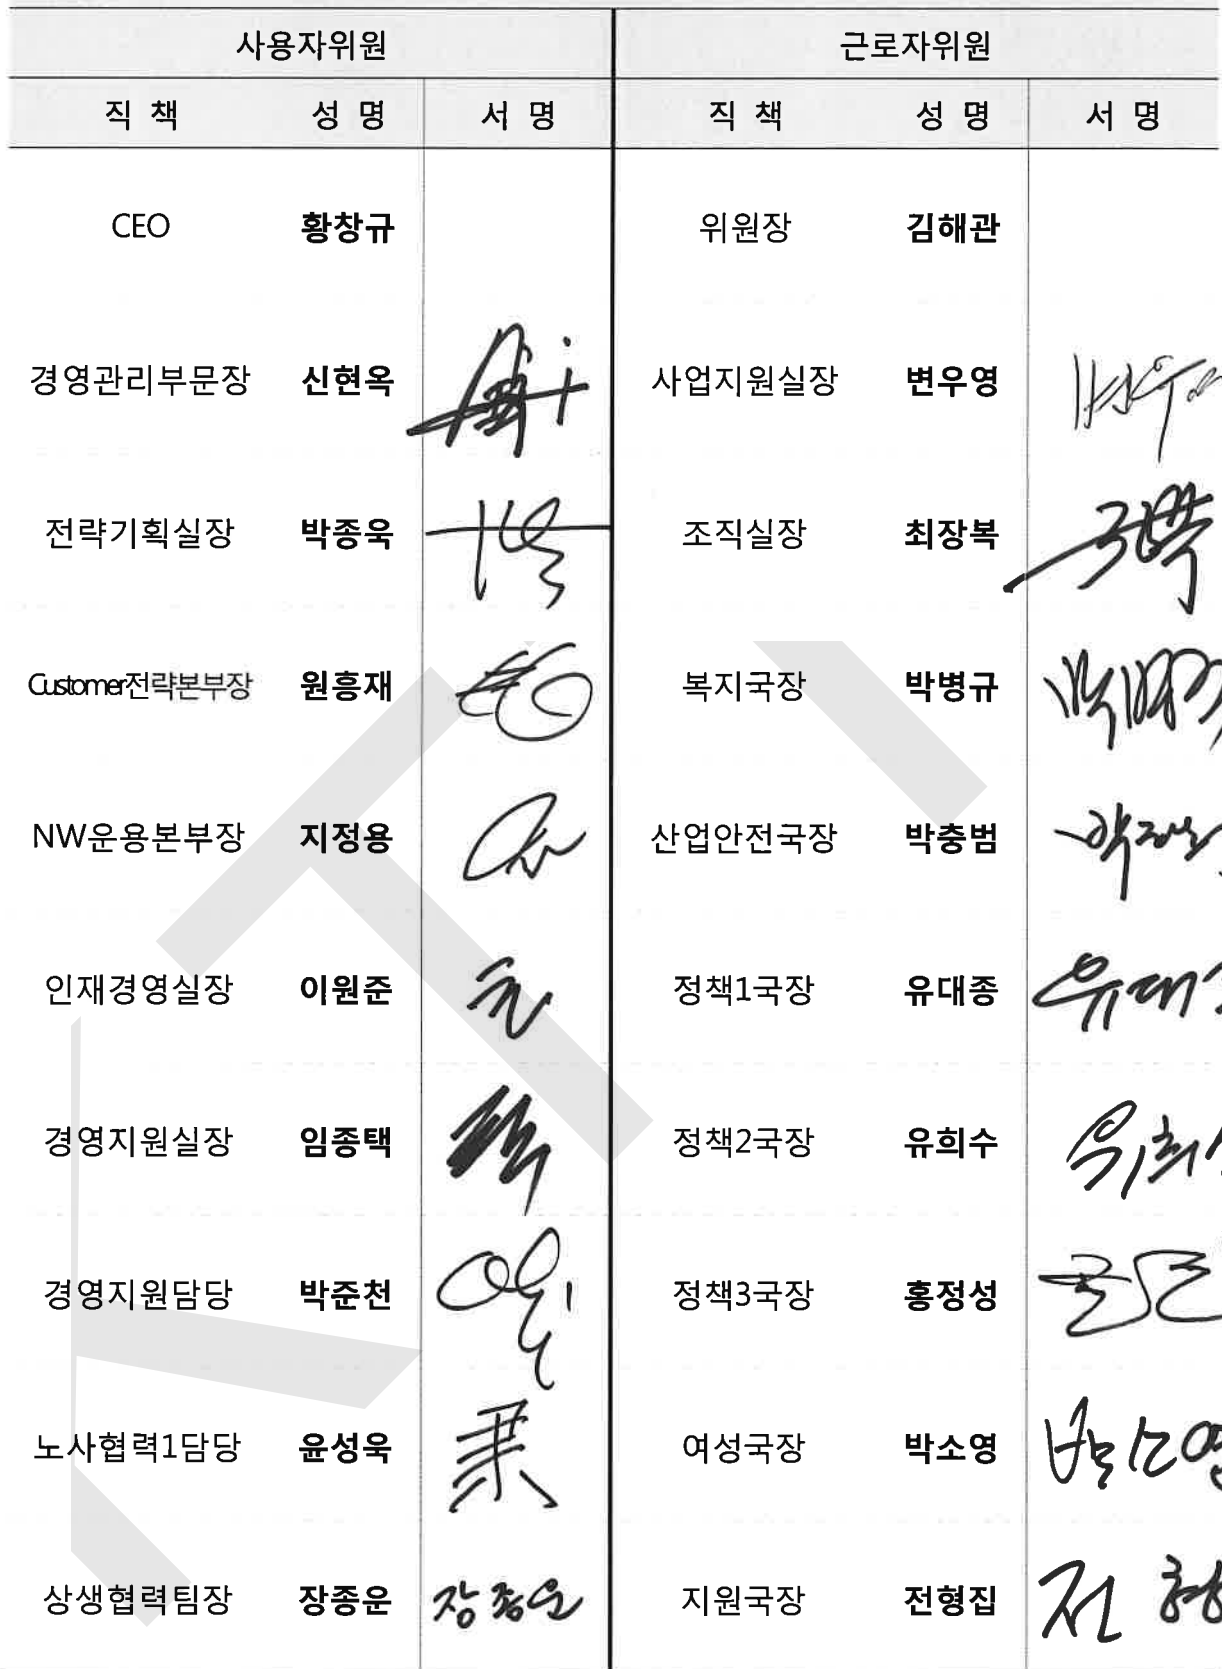 사용자위원 근로자위원
직 책 성 명 서 명 직 책 성 명 서 명
CEO 황창규 위원장 김해관
경영관리부문장 신현옥 사업지원실장 변우영
전략기획실장 박종욱 조직실장 최장복
Customer전략본부장 원흥재 복지국장 박병규
NW운용본부장 지정용 산업안전국장 박충범
인재경영실장 이원준 정책1국장 유대종 유대
경영지원실장 임종택 정책2국장 유희수 유희
경영지원담당 박준천 정책3국장 홍정성
노사협력1담당 윤성욱 여성국장 박소영 박소영
상생협력팀장 장종운 장종운 지원국장 전형집 전 형
KT